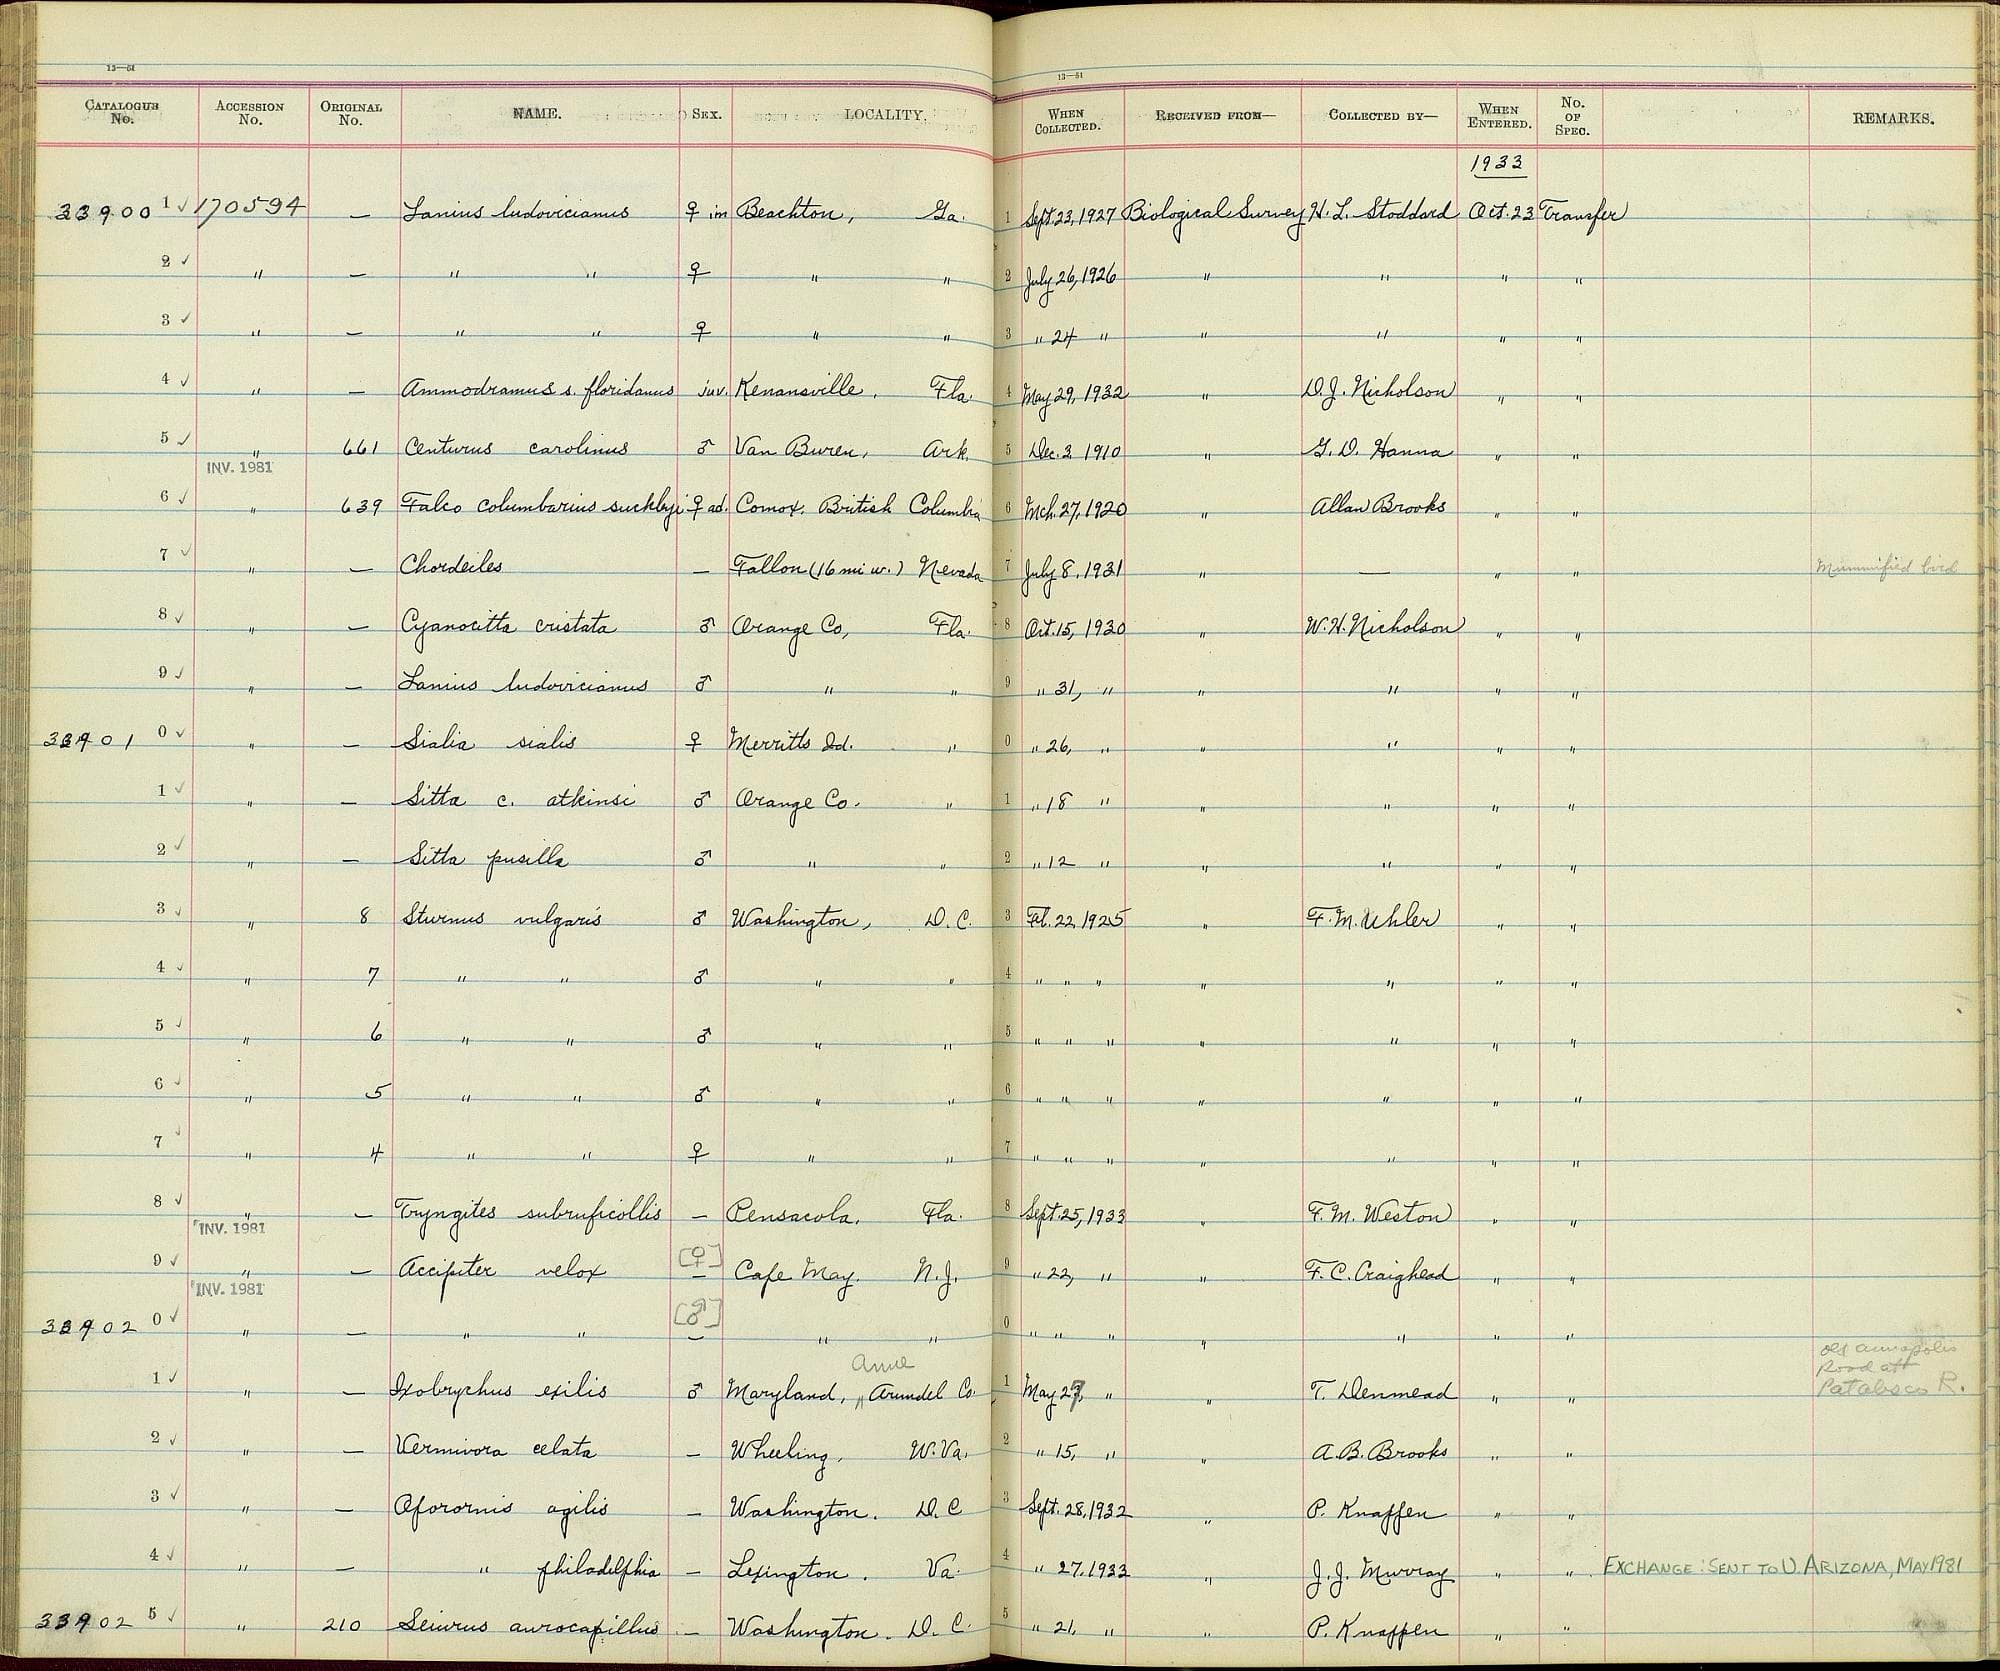 13—51 13—51
CATALOGUE No. ACCESSION No. ORIGINAL No. NAME. SEX. LOCALITY. WHEN COLLECTED. RECEIVED FROM— COLLECTED BY— WHEN ENTERED. No. OF SPEC. REMARKS.
1933
33900 1 ✓ 170594 — Lanius ludovicianus ♀ im Beachton, Ga. 1 Sept. 23, 1927 Biological Survey H. L. Stoddard Oct. 23 Transfer
2 ✓ " — " " ♀ " " 2 July 26, 1926 " " " "
3 ✓ " — " " ♀ " " 3 " 24 " " " " "
4 ✓ " — Ammodramus s. floridanus juv. Kenansville, Fla. 4 May 29, 1932 " D. J. Nicholson " "
5 ✓ " 661 Centurus carolinus ♂ Van Buren, Ark. 5 Dec. 3 1910 " G. D. Hanna " "
INV. 1981
6 ✓ " 639 Falco columbarius suckleyi ♀ ad. Comox, British Columbia 6 Mch. 27, 1920 " Allan Brooks " "
7 ✓ " — Chordeiles — Fallon (16 mi w.) Nevada 7 July 8, 1931 " — " " Mummified bird
8 ✓ " — Cyanocitta cristata ♂ Orange Co, Fla. 8 Oct. 15, 1930 " W. H. Nicholson " "
9 ✓ " — Lanius ludovicianus ♂ " " 9 " 31, " " " " "
33901 0 ✓ " — Sialia sialis ♀ Merritts Id. " 0 " 26, " " " " "
1 ✓ " — Sitta c. atkinsi ♂ Orange Co. " 1 " 18 " " " " "
2 ✓ " — Sitta pusilla ♂ " " 2 " 12 " " " " "
3 ✓ " 8 Sturnus vulgaris ♂ Washington, D. C. 3 Feb. 22, 1925 " F. M. Uhler " "
4 ✓ " 7 " " ♂ " " 4 " " " " " " "
5 ✓ " 6 " " ♂ " " 5 " " " " " " "
6 ✓ " 5 " " ♂ " " 6 " " " " " " "
7 ✓ " 4 " " ♀ " " 7 " " " " " " "
8 ✓ " — Tryngites subruficollis — Pensacola, Fla. 8 Sept. 25, 1933 " F. M. Weston " "
INV. 1981
9 ✓ " — Accipiter velox [♀] — Cape May. N. J. 9 " 22, " " F. C. Craighead " "
INV. 1981
33902 0 ✓ " — " " [♂] — " " 0 " " " " " " "
1 ✓ " — Ixobrychus exilis ♂ Maryland, Anne Arundel Co. 1 May 27, " " T. Denmead " " Old Annapolis
Road aft
Patapsco R.
2 ✓ " — Vermivora celata — Wheeling, W. Va. 2 " 15, " " A. B. Brooks " "
3 ✓ " — Oporornis agilis — Washington. D. C 3 Sept. 28, 1932 " P. Knappen " "
4 ✓ " — " philadelphia — Lexington. Va. 4 " 27, 1933 " J. J. Murray " " EXCHANGE: SENT TO U. ARIZONA, MAY 1981
33902 5 ✓ " 210 Seiurus aurocapillus — Washington. D. C. 5 " 21, " " P. Knappen " "